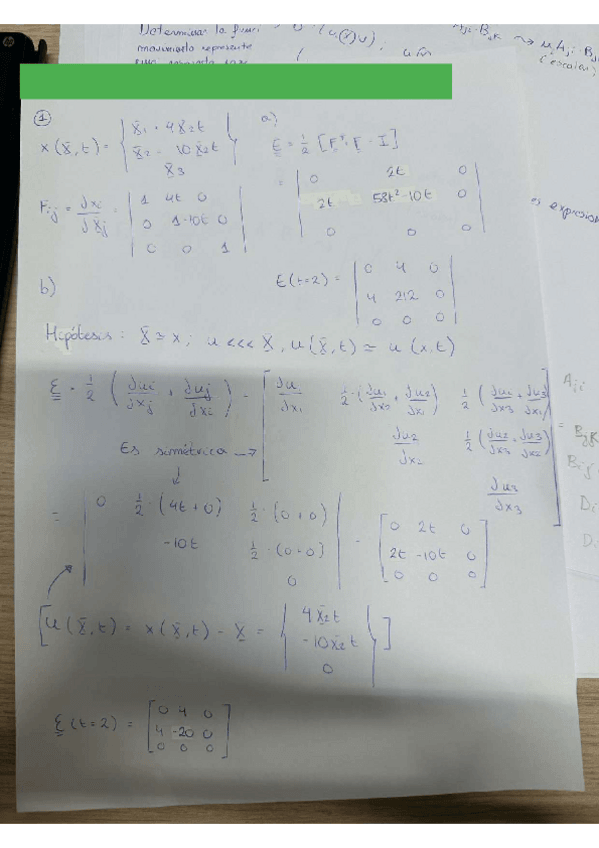 Determinar la
movimiento represente
(escalar)
es expresion
①
x(X,t) = { X1 + 4X2t
X2 - 10X2t
X3 }
a)
E = 1/2 [F^T · F - I]
= | 0 2t 0
2t 58t² - 10t 0
0 0 0 |
Fij = ∂xi/∂Xj = | 1 4t 0
0 1-10t 0
0 0 1 |
E(t=2) = | 0 4 0
4 212 0
0 0 0 |
b)
Hipótesis: X ≃ x; u <<< X, u(X,t) ≃ u(x,t)
ε = 1/2 (∂ui/∂xj + ∂uj/∂xi) = [ ∂u/∂x1 1/2·(∂u1/∂x2 + ∂u2/∂x1) 1/2 (∂u1/∂x3 + ∂u3/∂x1)
∂u2/∂x2 1/2 (∂u2/∂x3 + ∂u3/∂x2)
Es simétrica →
∂u3/∂x3 ]
= | 0 1/2·(4t+0) 1/2·(0+0)
-10t 1/2·(0+0)
0 | = [ 0 2t 0
2t -10t 0
0 0 0 ]
[ u(X,t) = x(X,t) - X = { 4X2t
-10X2t
0 } ]
ε(t=2) = [ 0 4 0
4 -20 0
0 0 0 ]